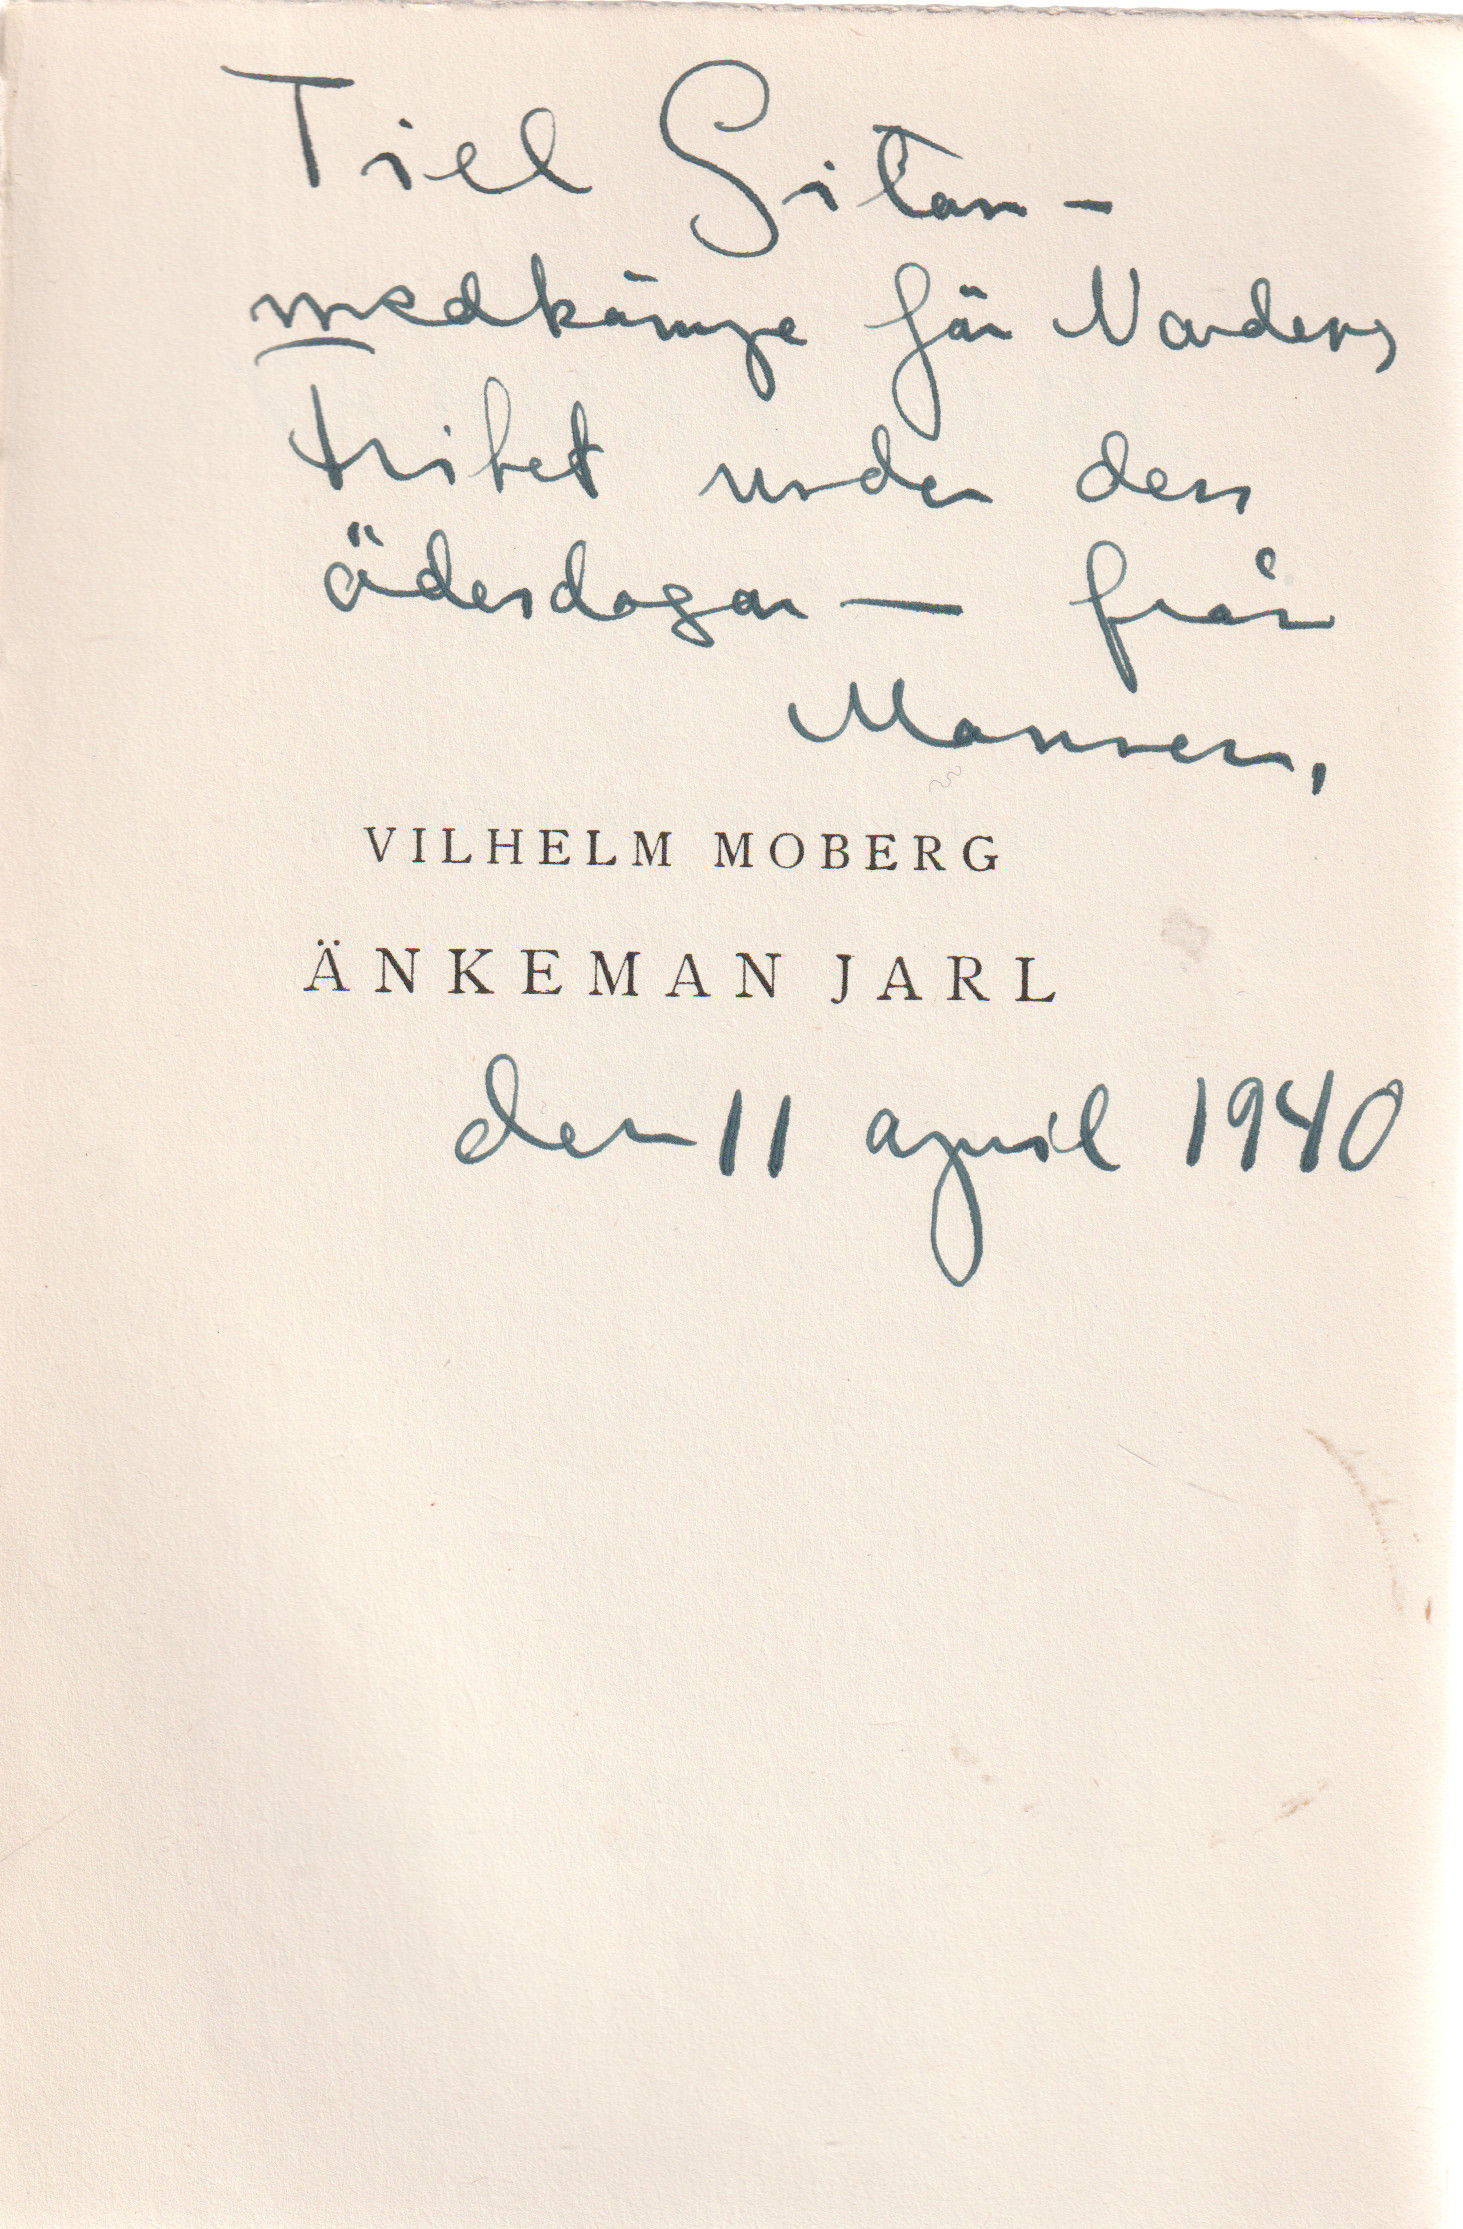 Till Gitan –
medkämpe för Nordens
frihet under den
ödesdagar — från
Mansen,
VILHELM MOBERG
ÄNKEMAN JARL
den 11 april 1940